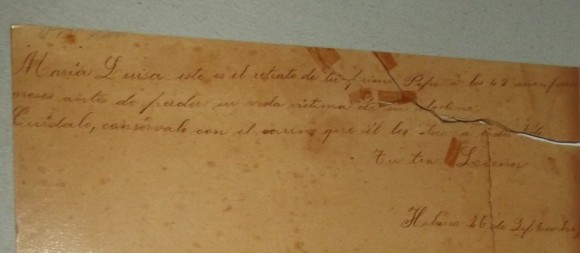 María Luisa este es el retrato de tu primo Pepe a los 48
meses antes de perder su vida víctima de
Cuídalo, consérvalo con el cariño que él les
Tu tía
Habana 26 de Septiembre